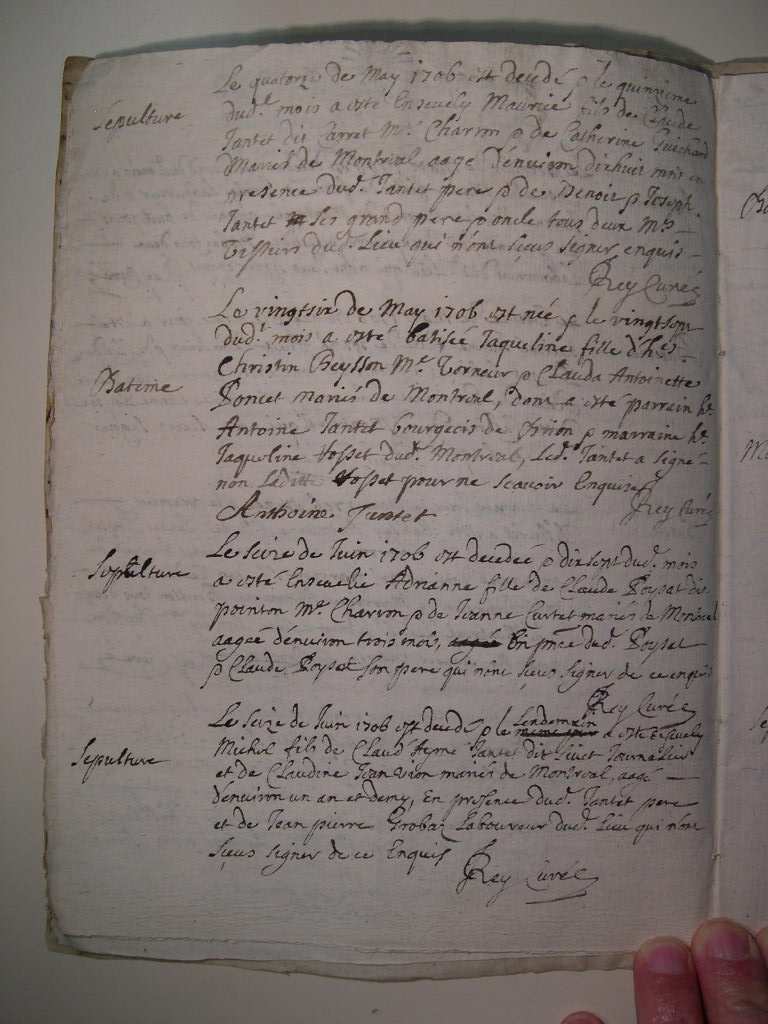 Sépulture
Le quatorze de May 1706 est decedé, & le quinzieme
dud.t mois a esté Ensevely Maurice fils de Claude
Tantet dit Carret M.e Charron & de Catherine Guichard
Mariés de Montreal, aagé d'environ dixhuit mois en
presence dud. Tantet pere & de Benoit & Joseph
Tantet Ses grand pere & oncle tous deux M.es
Tissiers dud. Lieu qui n'ont sçeus signer enquis
Rey Curé
Bateme
Le vingtsix de May 1706 est née & le vingtsept
dud.t mois a esté batisée Jaqueline fille d'h.es
Christin Beysson M.e Torneur & Clauda Antoinette
Poncet mariés de Montreal, dont a esté parrain h.e
Antoine Tantet bourgeois de & marraine h.e
Jaqueline Vosset dud. Montreal, Led. Tantet a signé
non Laditte Vosset pour ne scavoir Enquise
Rey Curé
Anthoine Tantet
Sepulture
Le seize de Juin 1706 est decedée & dixsept dud. mois
a esté Ensevelie Adrianne fille de Claude Poysat dit
pointon M.e Charron & de Jeanne Curtet mariés de Montreal
aagée d'environ trois mois, aagée En pnce dud. Poysat
& Claude Poysat son pere qui n'ont sçeus signer de ce enquis
Rey Curé
Sepulture
Le seize de Juin 1706 est decedé & le Lendemain a esté ensevely
Michel fils de Claud Ayme Tantet dit Journalier
et de Claudine Jeanvion mariés de Montreal, aagé
d'environ un an et demy, En presence dud. Tantet pere
et de Jean pierre Grobaz Laboureur dud. Lieu qui n'ont
sçeus signer de ce Enquis
Rey Curé